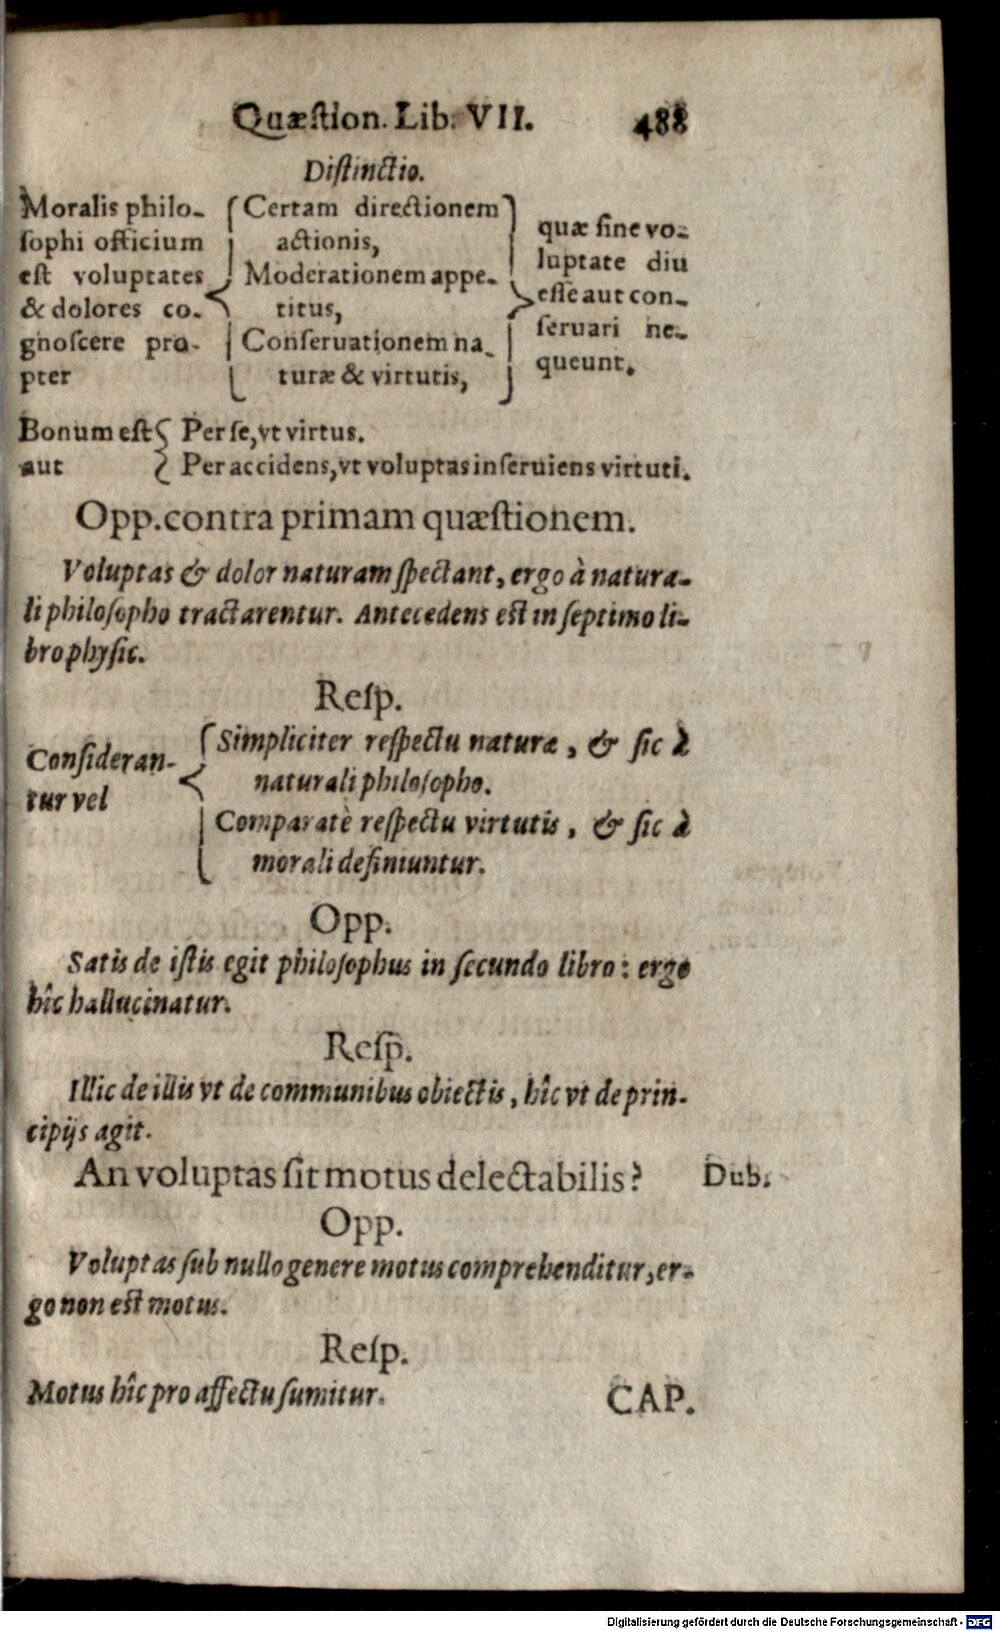 Quæstion. Lib. VII. 488
Distinctio.
Moralis philo-
sophi officium
est voluptates
& dolores co-
gnoscere pro-
pter
Certam directionem
actionis,
Moderationem appe-
titus,
Conseruationem na-
turæ & virtutis,
quæ sine vo-
luptate diu
esse aut con-
seruari ne-
queunt.
Bonum est
aut
Per se, vt virtus.
Per accidens, vt voluptas inseruiens virtuti.
Opp. contra primam quæstionem.
Voluptas & dolor naturam spectant, ergo à natura-
li philosopho tractarentur. Antecedens est in septimo li-
bro physic.
Resp.
Consideran-
tur vel
Simpliciter respectu naturæ, & sic à
naturali philosopho.
Comparatè respectu virtutis, & sic à
morali definiuntur.
Opp.
Satis de istis egit philosophus in secundo libro: ergo
hîc hallucinatur.
Resp.
Illic de illis vt de communibus obiectis, hîc vt de prin-
cipijs agit.
An voluptas sit motus delectabilis? Dub.
Opp.
Voluptas sub nullo genere motus comprehenditur, er-
go non est motus.
Resp.
Motus hîc pro affectu sumitur. CAP.
Digitalisierung gefördert durch die Deutsche Forschungsgemeinschaft - DFG